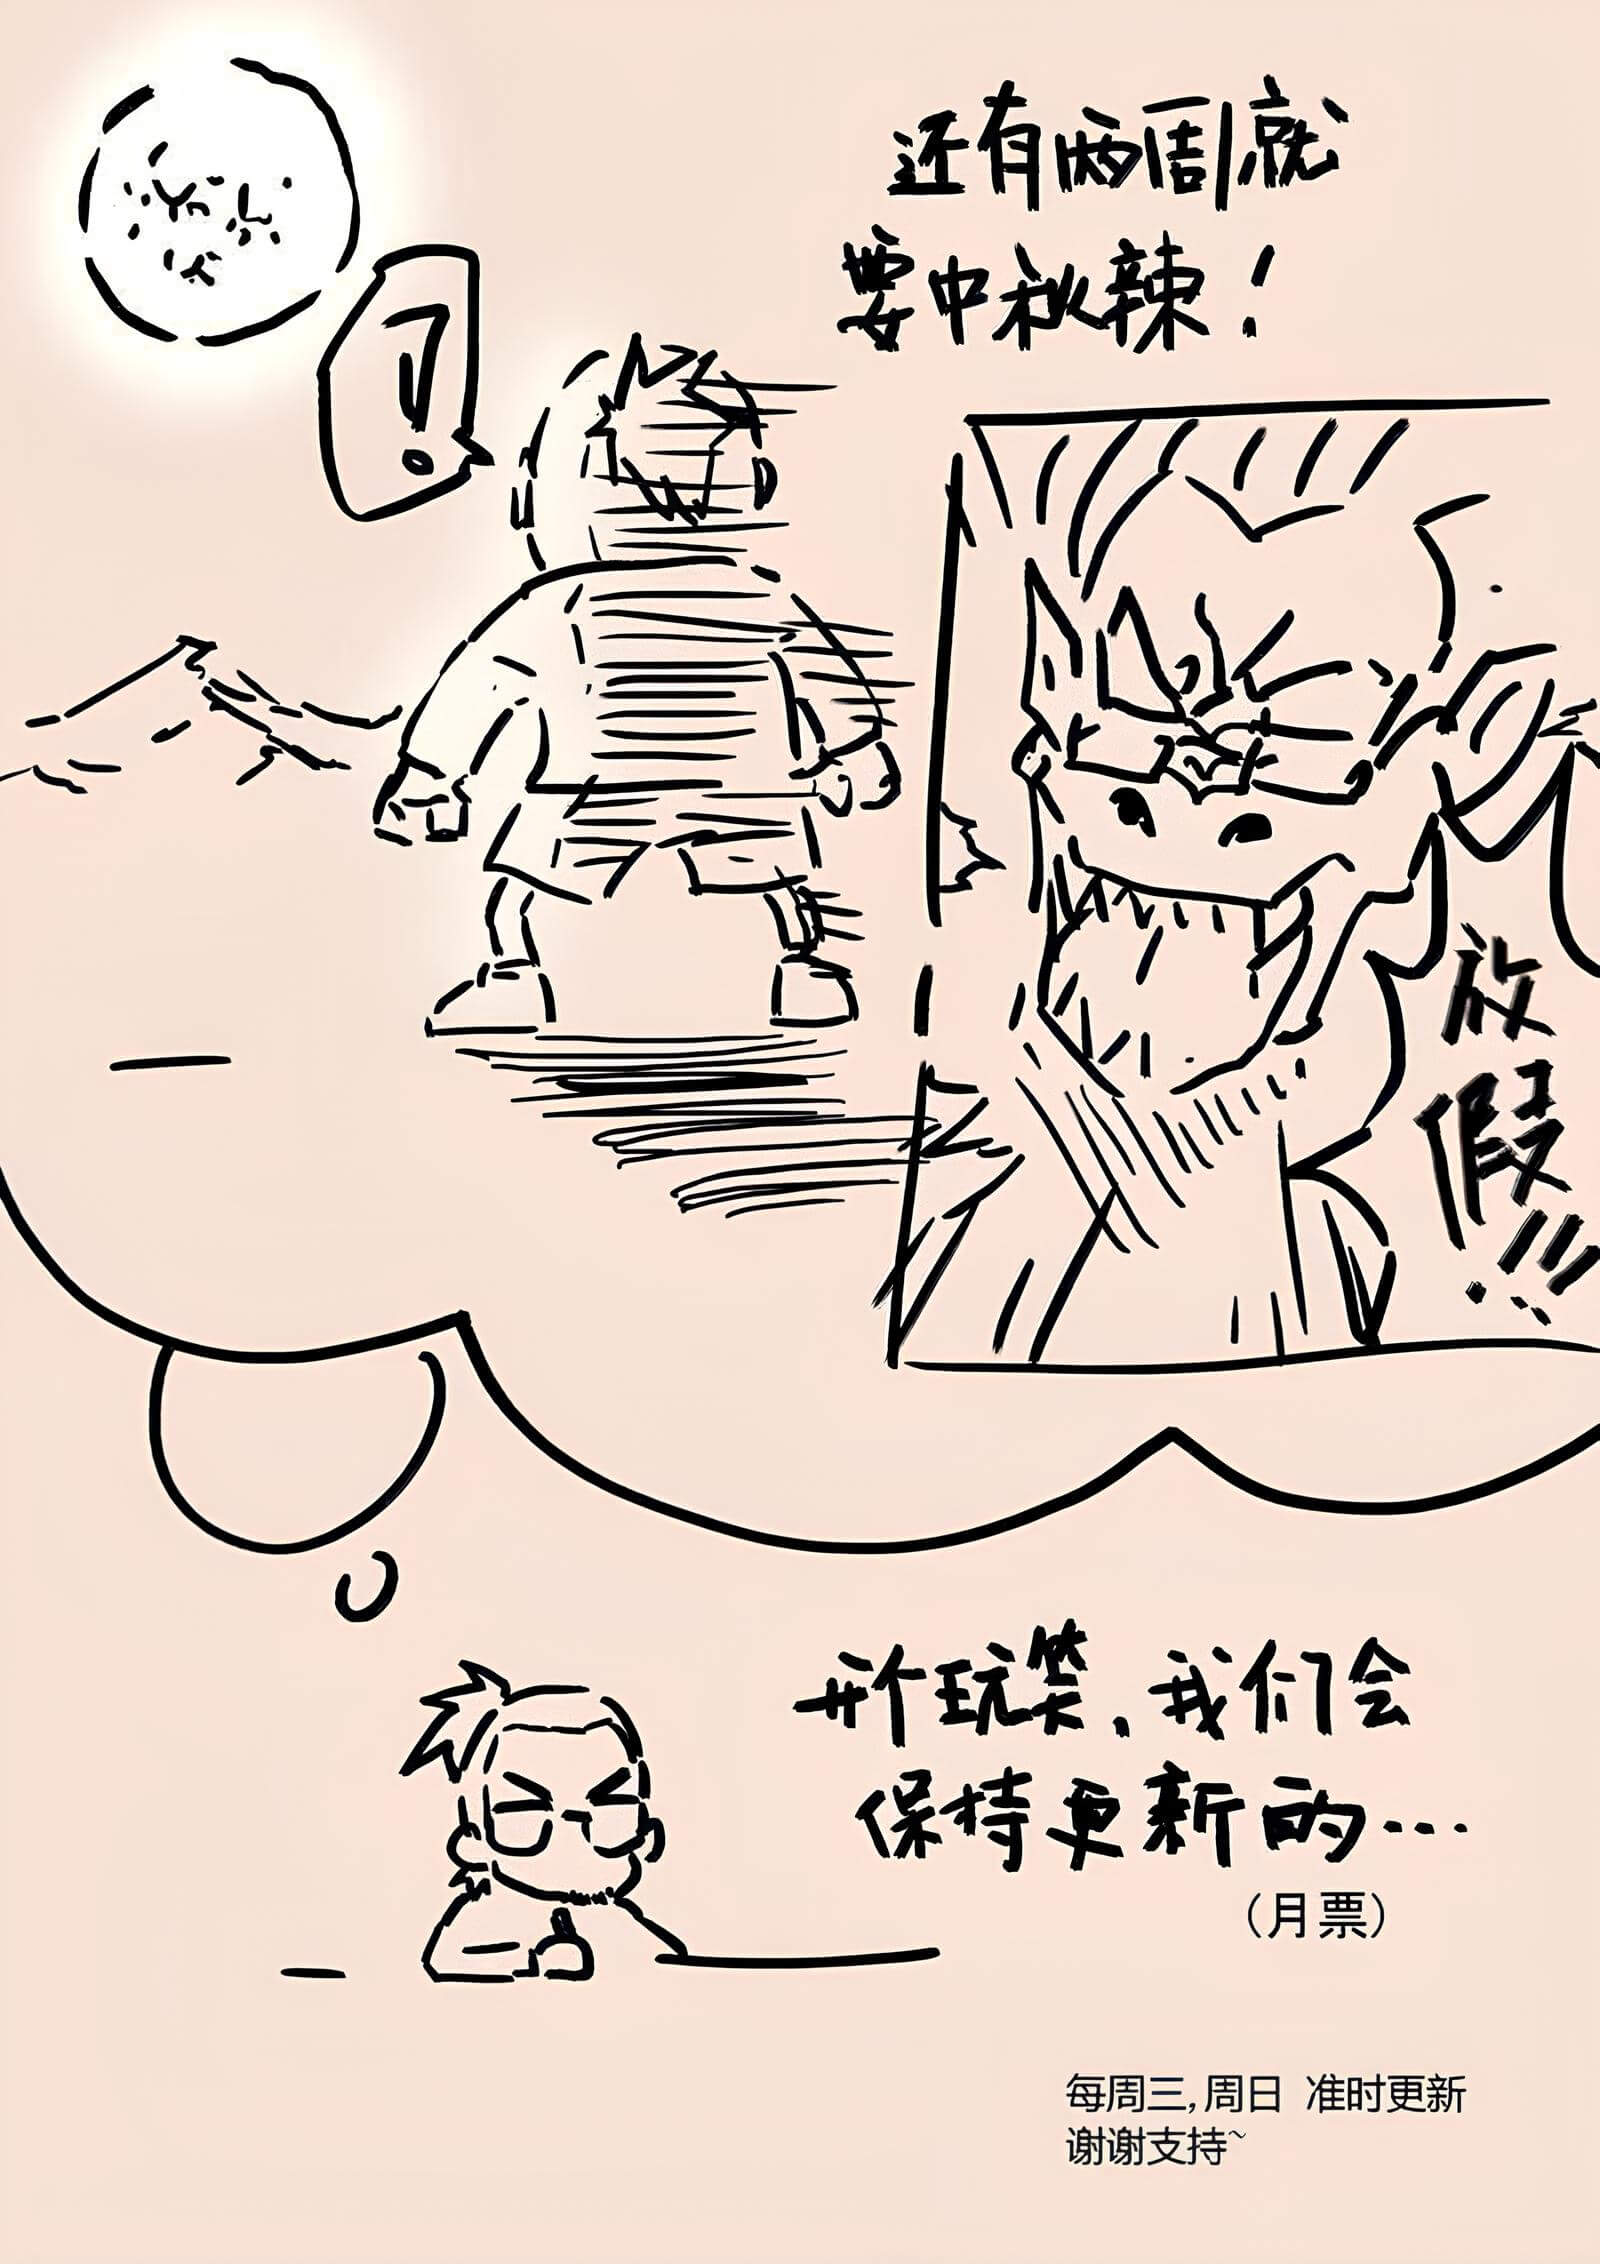 还有两周就
要中秋辣！
！
放
假!!!
开个玩笑，我们会
保持更新的…
（月票）
每周三，周日 准时更新
谢谢支持~